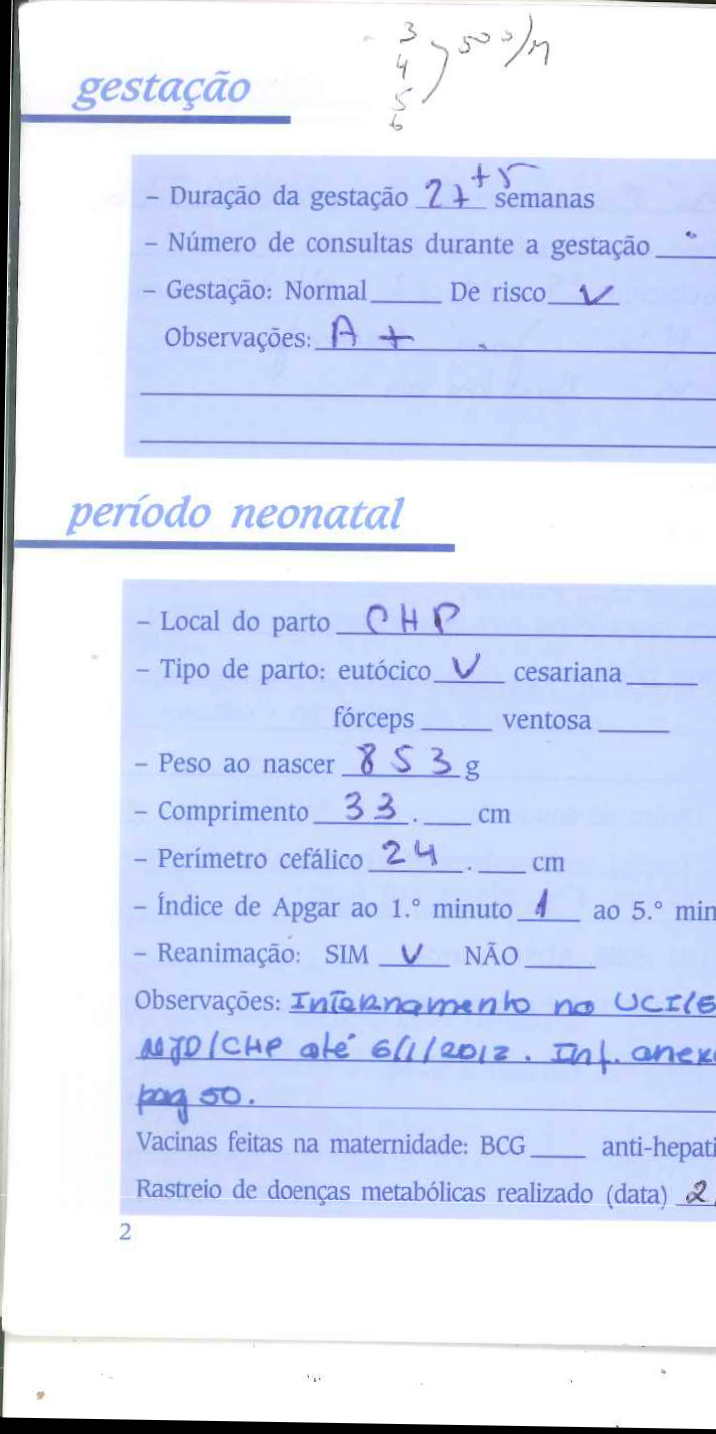 3
4
5
6
500/M
gestação
– Duração da gestação 27+5 semanas
– Número de consultas durante a gestação
– Gestação: Normal____ De risco V
Observações: A +
período neonatal
– Local do parto CHP
– Tipo de parto: eutócico V cesariana____
fórceps ____ ventosa ____
– Peso ao nascer 853 g
– Comprimento 33 . ___ cm
– Perímetro cefálico 24 . ___ cm
– Índice de Apgar ao 1.º minuto 1 ao 5.º min
– Reanimação: SIM V NÃO ____
Observações: Internamento no UCI/
MJD/CHP até 6/1/2012. Inf. anex
pag 50.
Vacinas feitas na maternidade: BCG ____ anti-hepati
Rastreio de doenças metabólicas realizado (data) 2
2